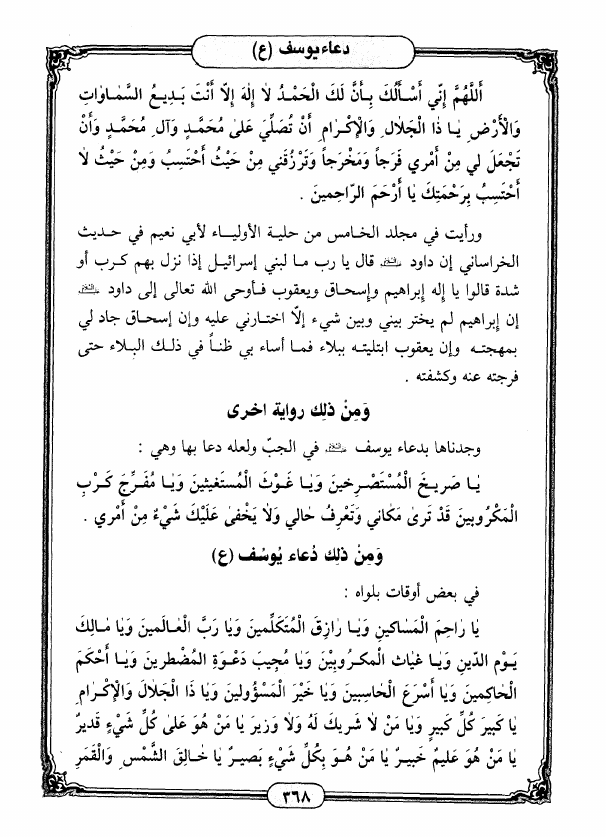 دعاء يوسف (ع)
أَللَّهُمَّ إِنّي أَسْأَلُكَ بِأَنَّ لَكَ الْحَمْدُ لاٰ إِلٰهَ إِلاّ أَنْتَ بَدِيعُ السَّمٰاوٰاتِ
وَالْأَرْضِ يٰا ذَا الْجَلاٰلِ وَالْإِكْرٰامِ أَنْ تُصَلِّيَ عَلىٰ مُحَمَّدٍ وَآلِ مُحَمَّدٍ وَأَنْ
تَجْعَلَ لي مِنْ أَمْري فَرَجاً وَمَخْرَجاً وَتَرْزُقَني مِنْ حَيْثُ أَحْتَسِبُ وَمِنْ حَيْثُ لاٰ
أَحْتَسِبُ بِرَحْمَتِكَ يٰا أَرْحَمَ الرّاحِمينَ .
ورأيت في مجلد الخامس من حلية الأوليـاء لأبي نعيم في حديث
الخراساني إن داود قال يا رب ما لبني إسرائيل إذا نزل بهم كرب أو
شدة قالوا يا إله إبراهيم وإسحاق ويعقوب فأوحى الله تعالى إلى داود
إن إبراهيم لم يختر بيني وبين شيء إلّا اختارني عليه وإن إسحاق جاد لي
بمهجته وإن يعقوب ابتليته ببلاء فما أساء بي ظناً في ذلك البلاء حتى
فرجته عنه وكشفته .
وَمِنْ ذلِك رواية اخرى
وجدناها بدعاء يوسف في الجبّ ولعله دعا بها وهي :
يٰا صَريخَ الْمُسْتَصْرِخينَ وَيٰا غَوْثَ الْمُسْتَغيثينَ وَيٰا مُفَرِّجَ كَرْبِ
الْمَكْرُوبينَ قَدْ تَرىٰ مَكٰاني وَتَعْرِفُ حٰالي وَلاٰ يَخْفىٰ عَلَيْكَ شَيْءٌ مِنْ أَمْري .
وَمِنْ ذلِك دُعاء يُوسُف (ع)
في بعض أوقات بلواه :
يٰا رٰاحِمَ الْمَسٰاكينِ وَيٰا رٰازِقَ الْمُتَكَلِّمينَ وَيٰا رَبَّ الْعٰالَمينَ وَيٰا مٰالِكَ
يَوْمِ الدّينِ وَيٰا غيٰاثَ الْمكْرُوبِيْنَ وَيٰا مُجيبَ دَعْوَةِ الْمُضْطرينَ وَيٰا أَحْكَمَ
الْحٰاكِمينَ وَيٰا أَسْرَعَ الْحٰاسِبينَ وَيٰا خَيْرَ الْمَسْؤُولينَ وَيٰا ذَا الْجَلاٰلِ وَالْإِكْرٰامِ
يٰا كَبيرَ كُلِّ كَبيرٍ وَيٰا مَنْ لاٰ شَريكَ لَهُ وَلاٰ وَزيرَ يٰا مَنْ هُوَ عَلىٰ كُلِّ شَيْءٍ قَديرٌ
يٰا مَنْ هُوَ عَليمٌ خَبيرٌ يٰا مَنْ هُوَ بِكُلِّ شَيْءٍ بَصيرٌ يٰا خٰالِقَ الشَّمْسِ وَالْقَمَرِ
٣٦٨